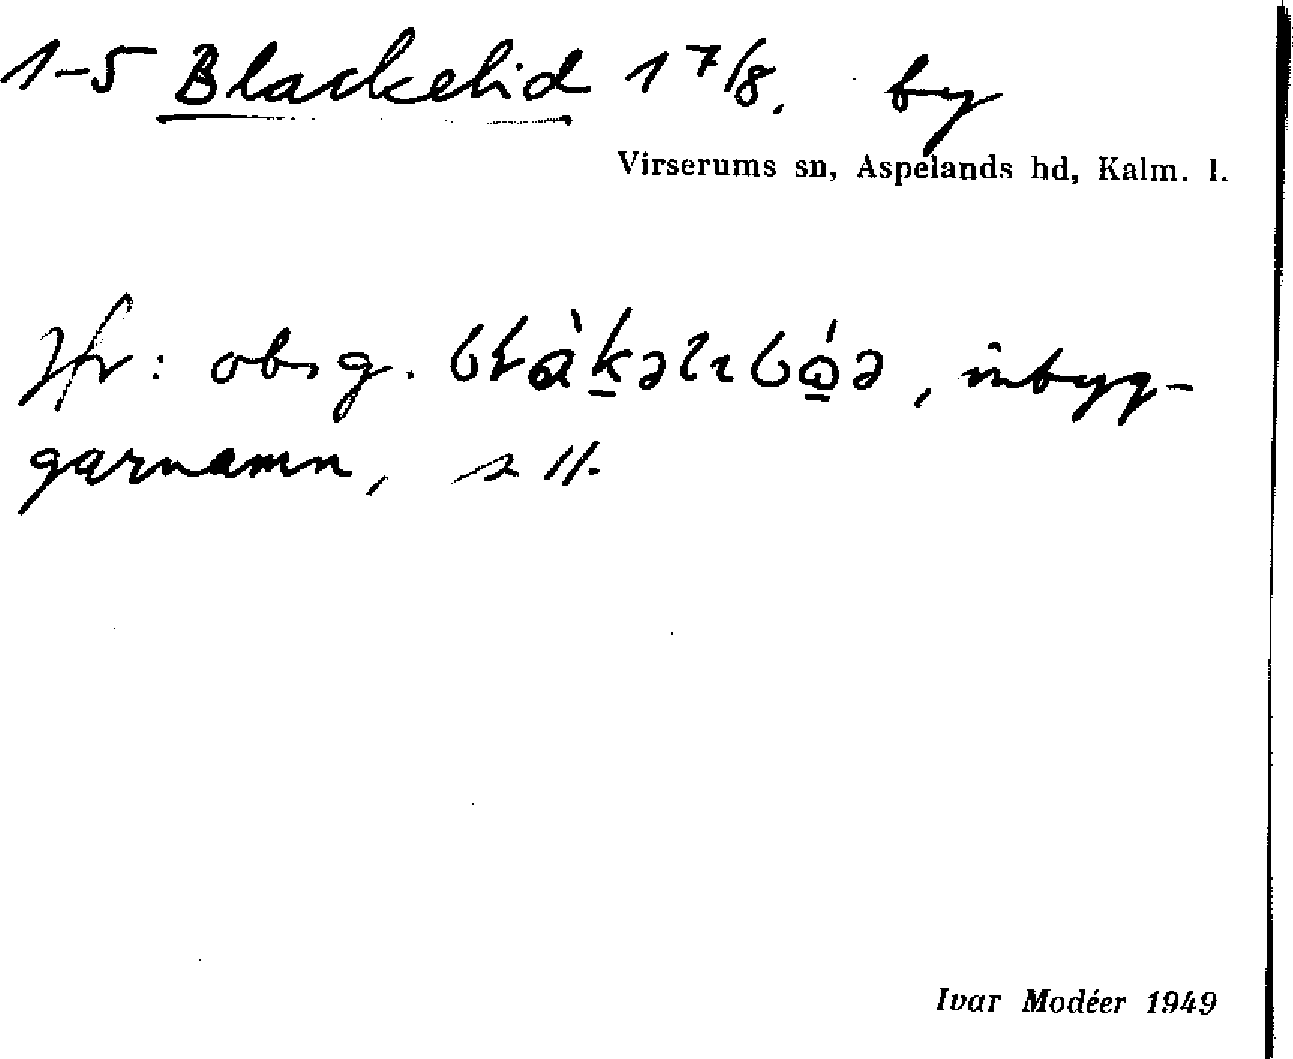 1-5 Blackelid 1 7/8. by
Virserums sn, Aspelands hd, Kalm. l.
Jfr: obsg. inbyg-
garnamn, s 11.
Ivar Modéer 1949